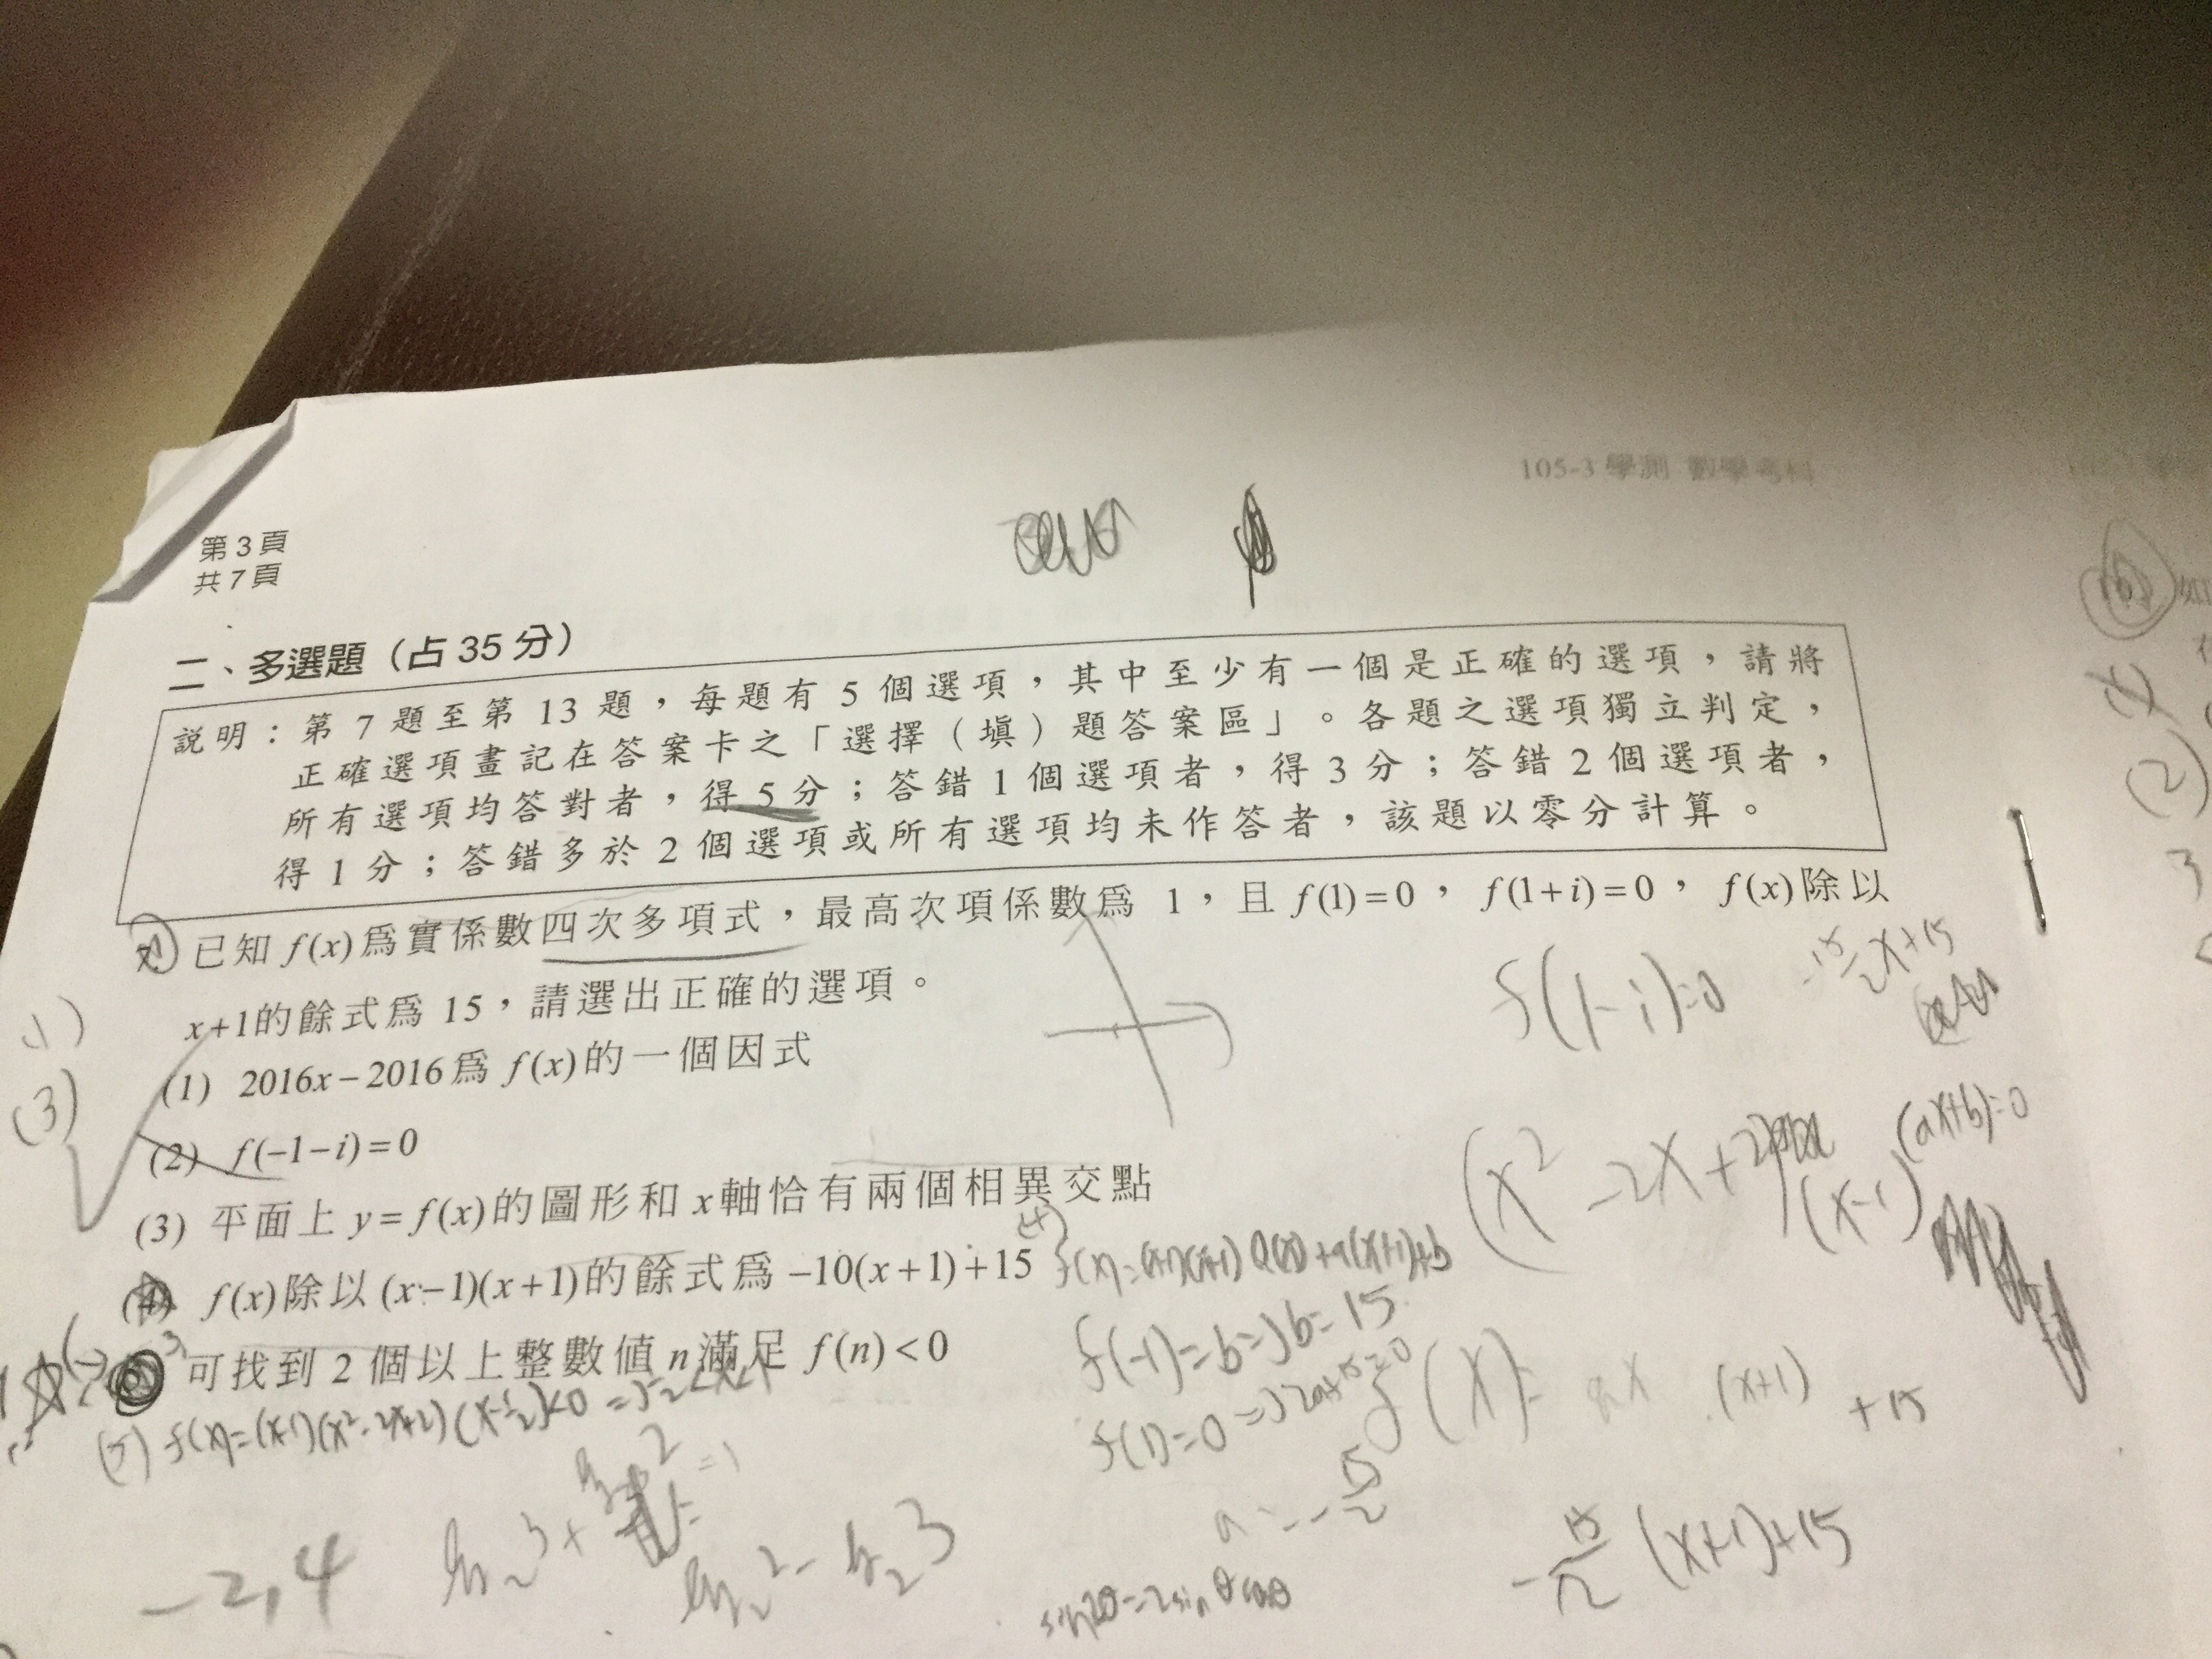 105-3 學測 數學考科
第3頁
共7頁
二、多選題（占35分）
說明：第7題至第13題，每題有5個選項，其中至少有一個是正確的選項，請將
正確選項畫記在答案卡之「選擇（填）題答案區」。各題之選項獨立判定，
所有選項均答對者，得5分；答錯1個選項者，得3分；答錯2個選項者，
得1分；答錯多於2個選項或所有選項均未作答者，該題以零分計算。
7. 已知f(x)為實係數四次多項式，最高次項係數為1，且f(1)=0，f(1+i)=0，f(x)除以
x+1的餘式為15，請選出正確的選項。
f(1-i)=0
-15/2 x+15
(1)
(1) 2016x-2016為f(x)的一個因式
(3)
(2) f(-1-i)=0
(x²-2x+2)
(x-1)
(ax+b)=0
(3) 平面上y=f(x)的圖形和x軸恰有兩個相異交點
(4) f(x)除以(x-1)(x+1)的餘式為-10(x+1)+15
(4)
f(x)=(x-1)(x+1)Q(x)+a(x+1)+b
可找到2個以上整數值n滿足f(n)<0
f(-1)=b=>b=15
f(1)=0
f(x)=
(x+1)
+15
(5) f(x)=(x-1)(x²-2x+2)
a=-15/2
-15/2 (x+1)+15
-2,4
sin2θ=2sinθcosθ
(2)
3